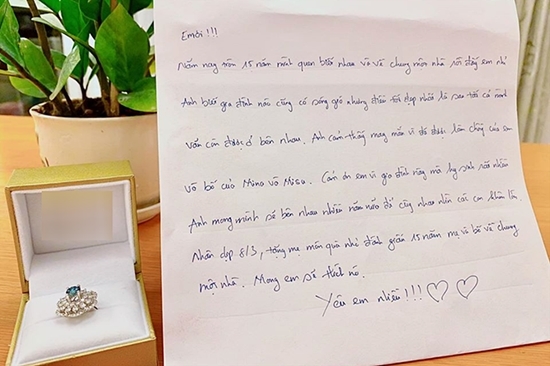 Em ơi !!!
Năm nay tròn 15 năm mình quen biết nhau và về chung một nhà rồi đấy em nhỉ
Anh biết gia đình nào cũng có sóng gió nhưng điều tốt đẹp nhất là sau tất cả mình
vẫn còn được ở bên nhau. Anh cảm thấy may mắn vì đã được làm chồng của em
và bố của Mina và Misa. Cảm ơn em vì gia đình này mà hy sinh rất nhiều
Anh mong mình sẽ bên nhau nhiều năm nữa để cùng nhau nhìn các con khôn lớn.
Nhân dịp 8/3, tặng mẹ món quà nhỏ đánh dấu 15 năm mẹ và bố về chung
một nhà. Mong em sẽ thích nó.
Yêu em nhiều !!!